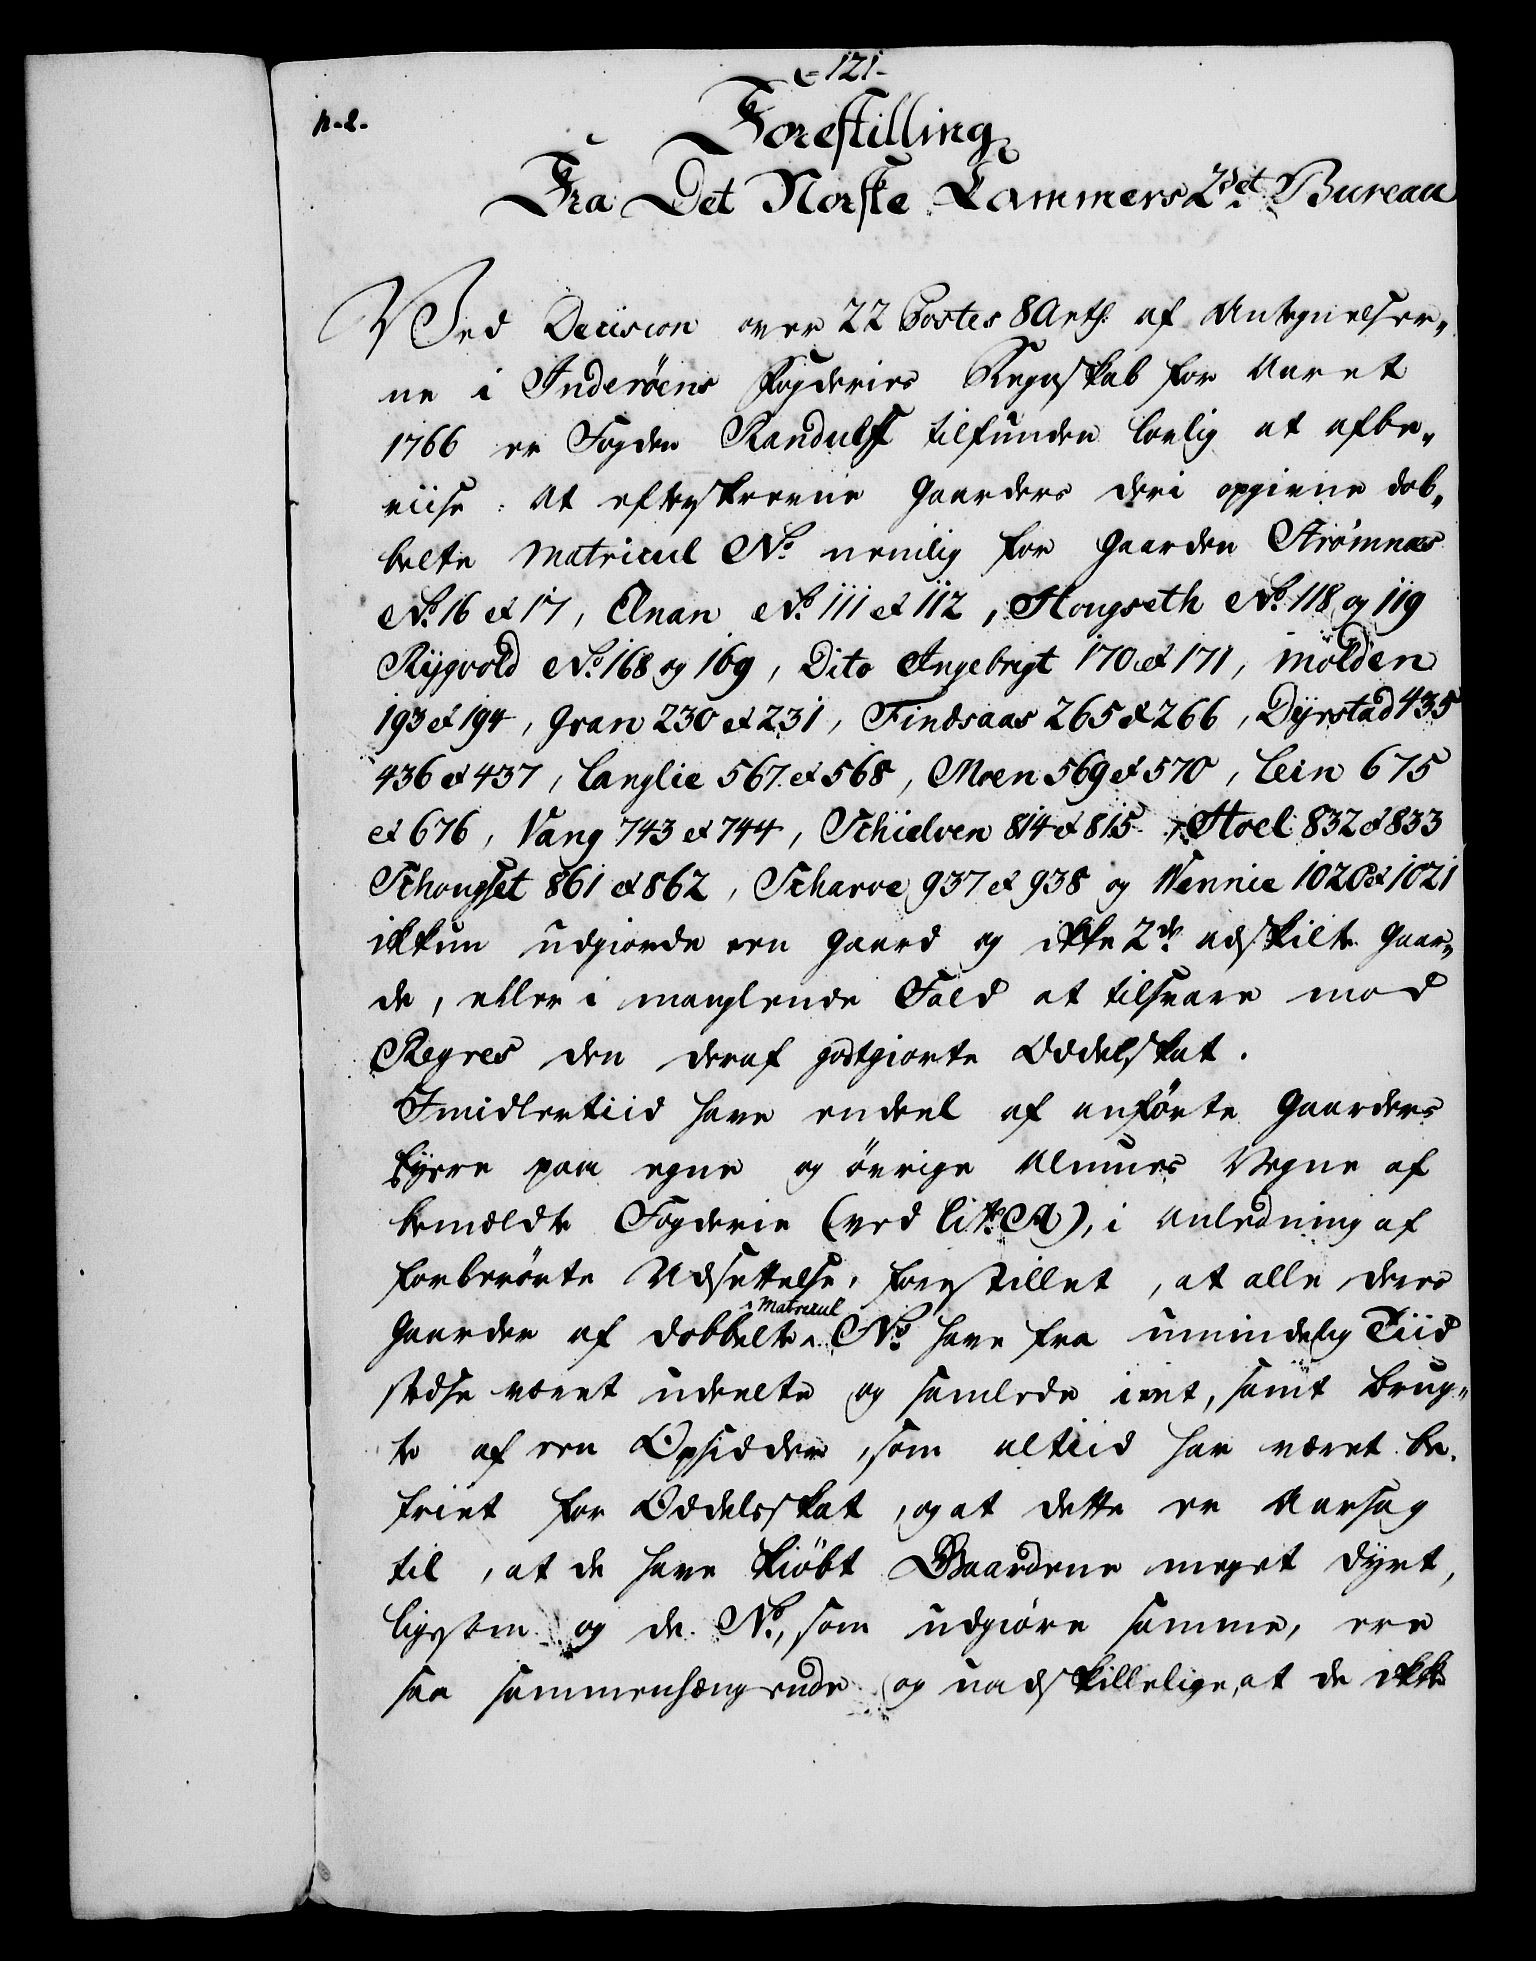 -121-
n. 2.
Forestilling
Fra Det Norske Cammers 2det Bureau
Ved Decision over 22 Postes 8 Arth: af Antegnelser„
ne i Inderöens Fogderies Regnskab for Aaret
1766 er Fogden Randulff tilfunden lovlig at afbe„
viise: At efterskrevne Gaarders deri opgivne dob„
belte Matricul No. nemlig for Gaarden Strømnæs
No. 16 et 17, Elnan No. 111 et 112, Hougseth No. 118 og 119
Rÿgvold No. 168 og 169, Dito Ingebrigt 170 et 171, Molden
193 et 194, Gran 230 et 231, Findsaas 265 et 266, Dÿrstad 435
436 et 437, Langlie 567 et 568, Moen 569 et 570, Lein 675
et 676, Vang 743 et 744, Schielven 814 et 815, Hoel 832 et 833
Schougset 861 et 862, Scharve 937 et 938 og Wennie 1020 et 1021
ikkun udgiorde een Gaard og ikke 2de adskilte Gaar„
de, eller i manglende Fald at tilsvare mod
Regres den deraf godtgiorte Oddelskat.
Imidlertiid have endeel af anførte Gaarders
Eÿere paa egne og övrige Almues Vegne af
bemældte Fogderie (ved Litr. A), i Anledning af
forberörte Udsettelse, forestillet, at alle deres
Gaarder af dobbelte Matricul No. have fra umindelig Tiid
stedse været udeelte og samlede i eet, samt brug„
te af een Opsidder, som altiid har været be„
friet for Oddelsskat, og at dette er Aarsag
til, at de have kiöbt Gaardene meget dÿrt,
ligesom og de No., som udgiöre samme, ere
saa sammenhængende og uadskillelige, at de ikke